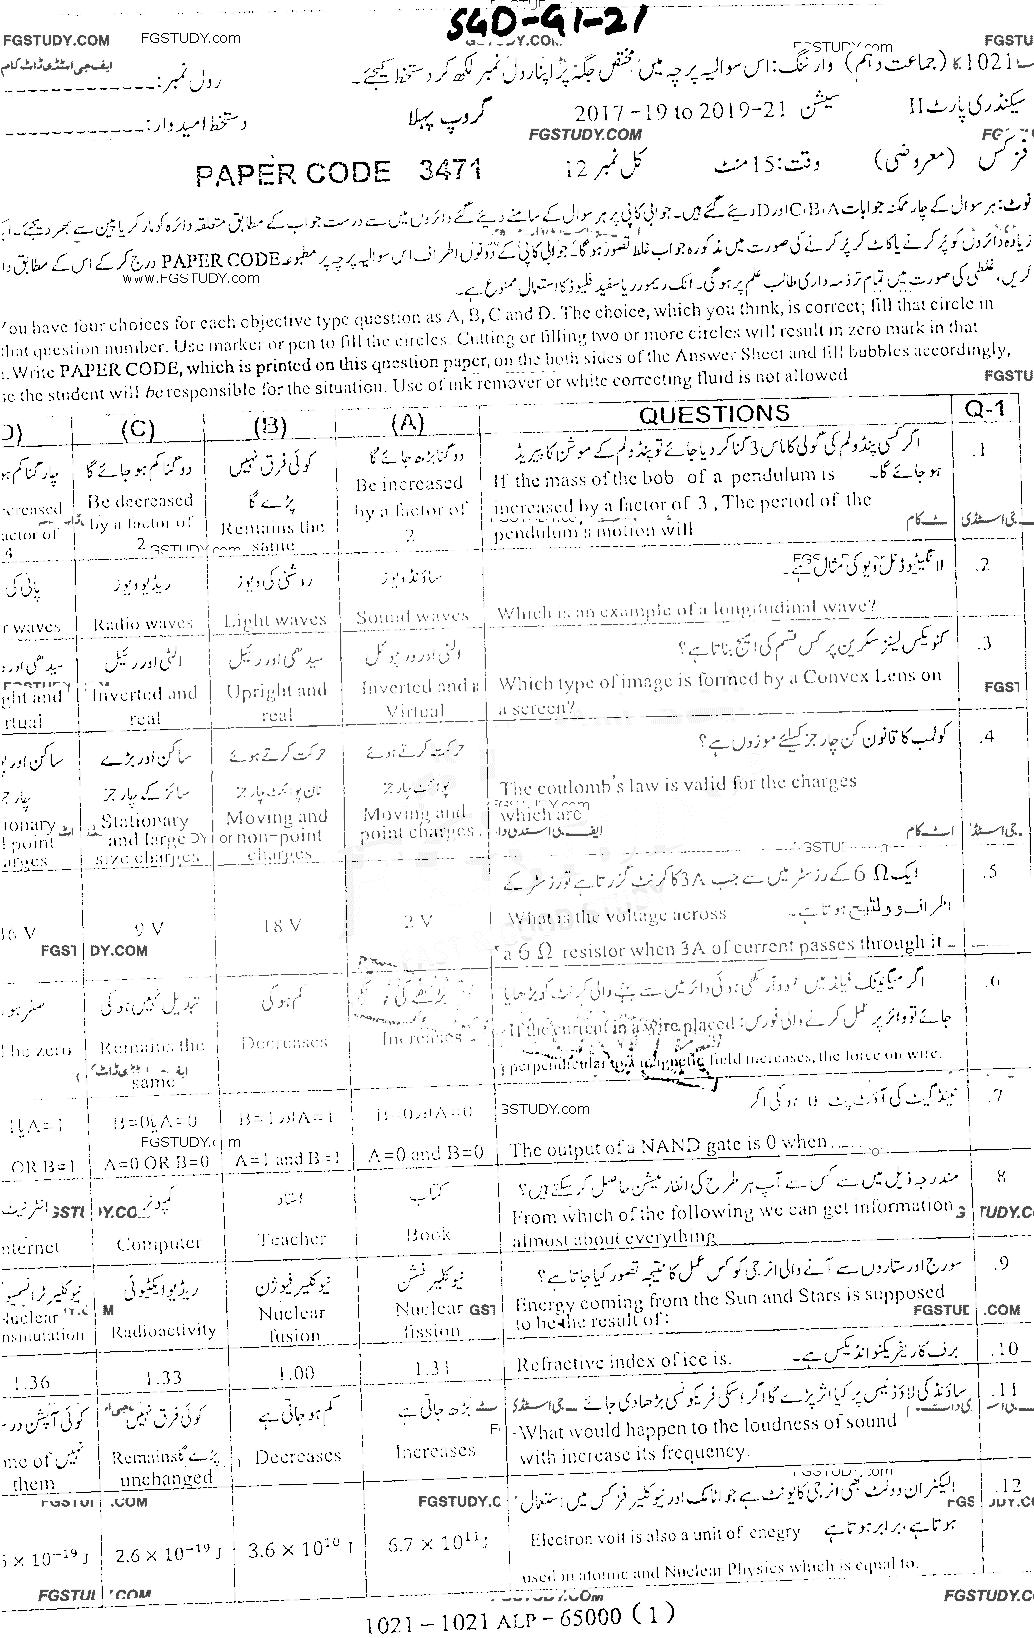 SGD-G1-21
FGSTUDY.COM FGSTUDY.com FGSTUDY.com FGSTU
1021 کا (جماعت دہم) وارننگ: اس سوالیہ پرچہ میں مختص جگہ پر اپنا رول نمبر لکھ کر دستخط کیجئے۔ رول نمبر:
سیکنڈری پارٹ II سیشن 2017-19 to 2019-21 گروپ پہلا دستخط امیدوار:
FGSTUDY.COM
فزکس (معروضی) وقت: 15 منٹ کل نمبر 12 PAPER CODE 3471
نوٹ: ہر سوال کے چار ممکنہ جوابات A، B، C اور D دیئے گئے ہیں۔ جوابی کاپی پر ہر سوال کے سامنے دیئے گئے دائروں میں سے درست جواب کے مطابق متعلقہ دائرہ کو مارکر یا پین سے بھر دیجئے۔
زیادہ دائروں کو پُر کرنے یا کاٹ کر پُر کرنے کی صورت میں مذکورہ جواب غلط تصور ہوگا۔ جوابی کاپی کے دونوں اطراف اس سوالیہ پرچہ پر مطبوعہ PAPER CODE درج کر کے اس کے مطابق
کریں، غلطی کی صورت میں تمام تر ذمہ داری طالب علم پر ہوگی۔ انک ریمور یا سفید فلیوڈ کا استعمال ممنوع ہے۔
www.FGSTUDY.com
You have four choices for each objective type question as A, B, C and D. The choice, which you think, is correct; fill that circle in
that question number. Use marker or pen to fill the circles. Cutting or filling two or more circles will result in zero mark in that
. Write PAPER CODE, which is printed on this question paper, on the both sides of the Answer Sheet and fill bubbles accordingly,
se the student will be responsible for the situation. Use of ink remover or white correcting fluid is not allowed FGSTU
D) (C) (B) (A) QUESTIONS Q-1
اگر کسی پنڈولم کی گولی کا ماس 3 گنا کر دیا جائے تو پنڈولم کے موشن کا پیریڈ .1
ہو جائے گا۔
If the mass of the bob of a pendulum is
increased by a factor of 3, The period of the
pendulum's motion will
دوگنا بڑھ جائے گا
Be increased
by a factor of
2
کوئی فرق نہیں
پڑے گا
Remains the
same
دو گنا کم ہو جائے گا
Be decreased
by a factor of
2
چار گنا کم
ecreased
actor of
4
لانگیٹیوڈنل ویو کی مثال ہے۔ .2
Which is an example of a longitudinal wave?
ساؤنڈ ویوز
Sound waves
روشنی کی ویوز
Light waves
ریڈیو ویوز
Radio waves
پانی کی
r waves
کنویکس لینز سکرین پر کس قسم کی امیج بناتا ہے؟ .3
Which type of image is formed by a Convex Lens on
a screen?
الٹی اور ورچوئل
Inverted and a
Virtual
سیدھی اور رئیل
Upright and
real
الٹی اور رئیل
Inverted and
real
سیدھی اور
ght and
rtual
کولمب کا قانون کن چارجز کیلئے موزوں ہے؟ .4
The coulomb's law is valid for the charges
which are
حرکت کرتے ہوئے
پوائنٹ چارجز
Moving and
point charges.
حرکت کرتے ہوئے
نان پوائنٹ چارجز
Moving and
non-point
charges
ساکن اور بڑے
سائز کے چارجز
Stationary
and large
size charges
ساکن اور
چارجز
ionary
point
arges
ایک 6 Ω کے رزسٹر میں سے جب 3A کا کرنٹ گزرتا ہے تو رزسٹر کے .5
اطراف وولٹیج ہوتا ہے۔
What is the voltage across
a 6 Ω resistor when 3A of current passes through it
2 V
18 V
9 V
36 V
FGSTUDY.COM
.6
جائے تو وائر پر عمل کرنے والی فورس:
If the current in a wire placed
perpendicular to a magnetic field increases, the force on wire.
Increases
کم ہوگی
Decreases
تبدیل نہیں ہوگی
Remains the
same
صفر
he zero
نینڈ گیٹ کی آؤٹ پٹ 0 ہوگی اگر .7
The output of a NAND gate is 0 when
A=0 اور B=0
A=0 and B=0
A=1 اور B=1
A=1 and B=1
A=0 یا B=0
A=0 OR B=0
A=1 یا
OR B=1
FGSTUDY.com
مندرجہ ذیل میں سے کس سے آپ ہر طرح کی انفارمیشن حاصل کر سکتے ہیں؟ 8
From which of the following we can get information
almost about everything
کتاب
Book
استاد
Teacher
کمپیوٹر
Computer
انٹرنیٹ
nternet
سورج اور ستاروں سے آنے والی انرجی کو کس عمل کا نتیجہ تصور کیا جاتا ہے؟ .9
Energy coming from the Sun and Stars is supposed
to be the result of:
نیوکلیئر فشن
Nuclear
fission
نیوکلیئر فیوژن
Nuclear
fusion
ریڈیو ایکٹیوٹی
Radioactivity
Nuclear
nsmutation
برف کا ریفریکٹو انڈیکس ہے۔ .10
Refractive index of ice is.
1.31
1.00
1.33
1.36
ساؤنڈ کی لاؤڈنیس پر کیا اثر پڑے گا اگر اسکی فریکوئنسی بڑھا دی جائے .11
What would happen to the loudness of sound
with increase its frequency.
بڑھ جاتی ہے
Increases
کم ہو جاتی ہے
Decreases
کوئی فرق نہیں
پڑے گا
Remains
unchanged
کوئی آپشن
نہیں
me of
them
الیکٹران وولٹ بھی انرجی کا یونٹ ہے جو اٹامک اور نیوکلیر فزکس میں استعمال .12
ہوتا ہے، برابر ہوتا ہے
Electron volt is also a unit of enegry
used in atomic and Nuclear Physics which is equal to.
6.7 × 10¹¹ J
3.6 × 10¹⁰ J
2.6 × 10⁻¹⁹ J
× 10⁻¹⁹ J
FGSTUDY.COM
1021 – 1021 ALP – 65000 (1)